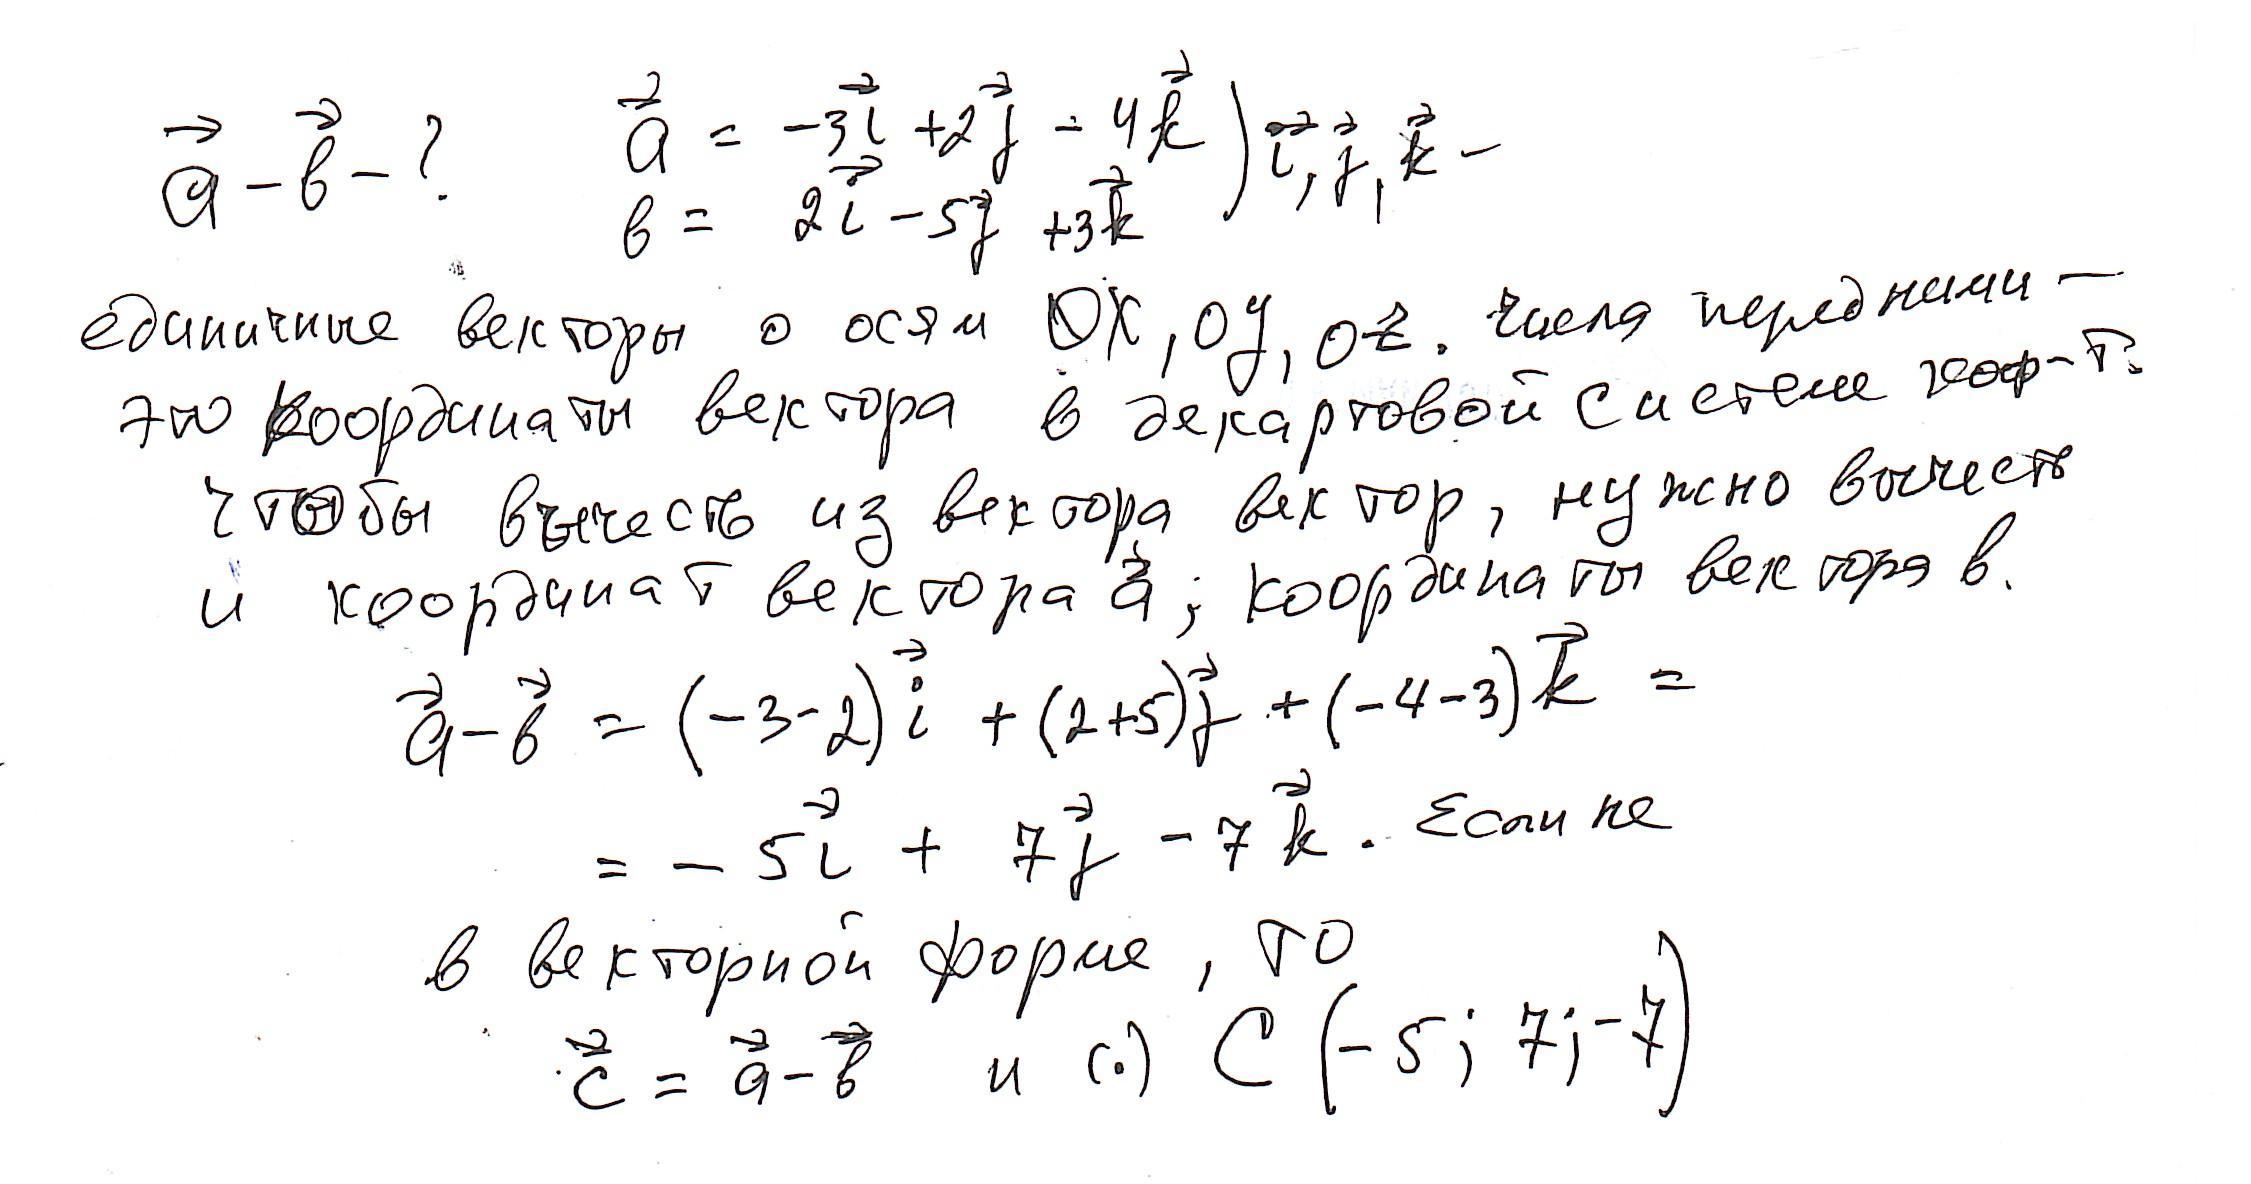 a⃗ - в⃗ - ? a⃗ = -3i⃗ + 2j⃗ - 4k⃗ ) i⃗, j⃗, k⃗ -
в = 2i⃗ - 5j⃗ + 3k⃗
единичные векторы о осям OX, OY, OZ. числа перед ними -
это координаты вектора в декартовой системе коор-т.
чтобы вычесть из вектора вектор, нужно вычесть
и координат вектора a⃗; координаты вектора в.
a⃗ - в⃗ = (-3-2)i⃗ + (2+5)j⃗ + (-4-3)k⃗ =
= - 5i⃗ + 7j⃗ - 7k⃗. Если не
в векторной форме, то
c⃗ = a⃗ - в⃗ и (·) C (-5; 7; -7)